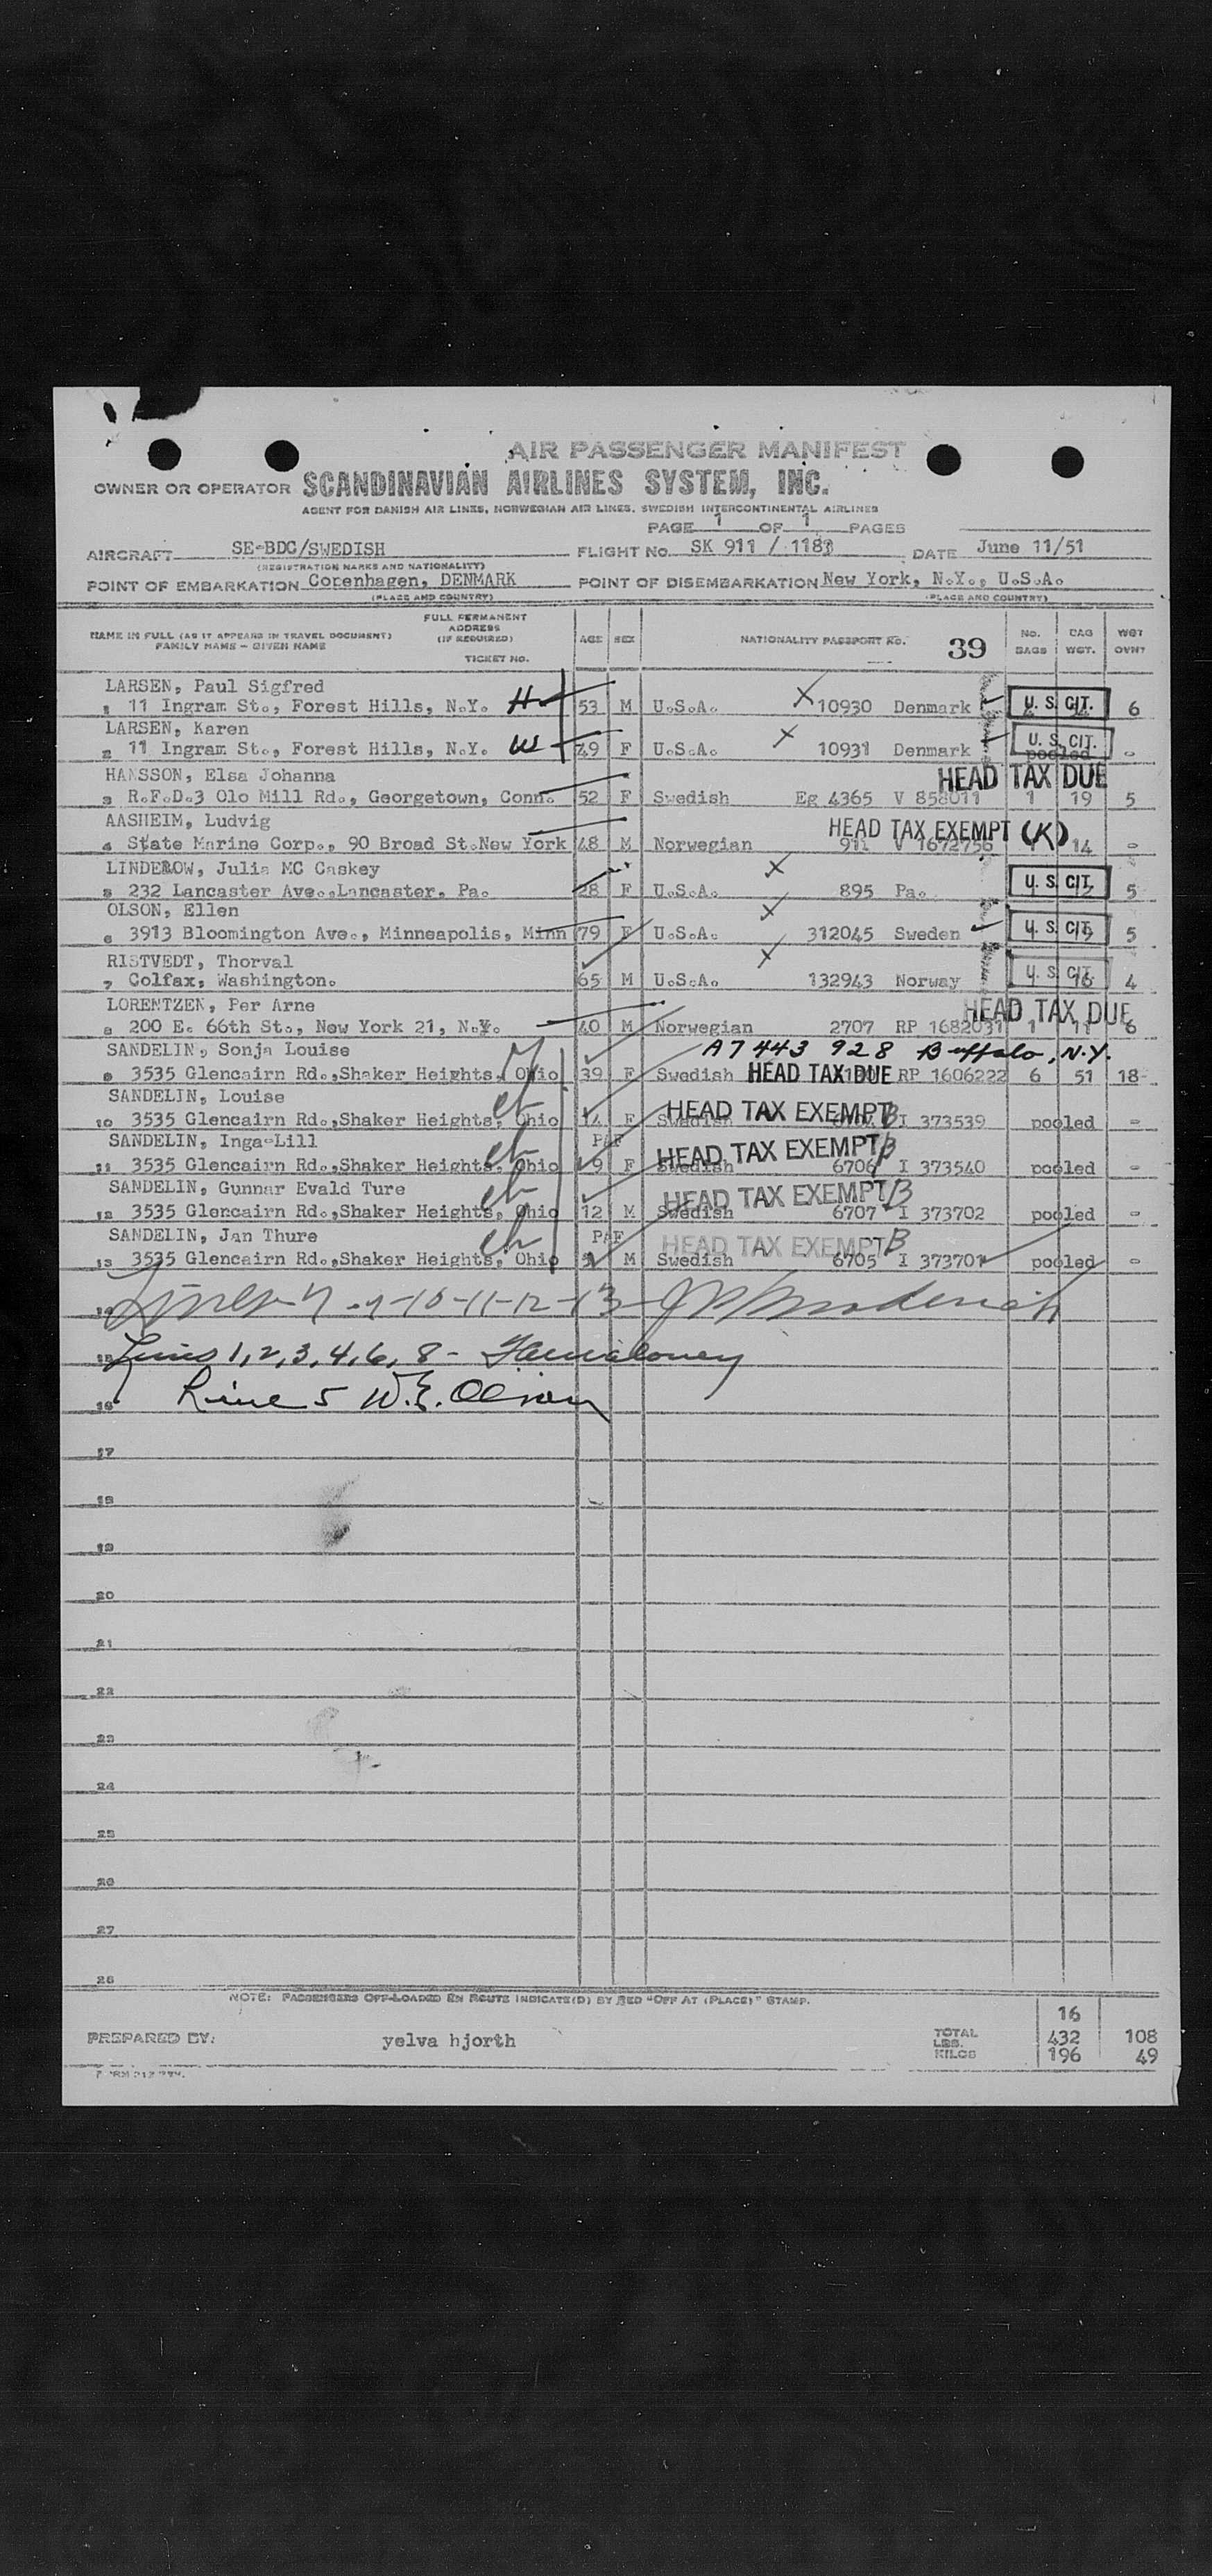 AIR PASSENGER MANIFEST
OWNER OR OPERATOR SCANDINAVIAN AIRLINES SYSTEM, INC.
AGENT FOR DANISH AIR LINES, NORWEGIAN AIR LINES, SWEDISH INTERCONTINENTAL AIRLINES
PAGE 1 OF 1 PAGES
AIRCRAFT SE-BDC/SWEDISH FLIGHT NO. SK 911 / DATE June 11/51
(REGISTRATION MARKS AND NATIONALITY)
POINT OF EMBARKATION Copenhagen, DENMARK POINT OF DISEMBARKATION New York, N.Y., U.S.A.
(PLACE AND COUNTRY) (PLACE AND COUNTRY)
NAME IN FULL (AS IT APPEARS IN TRAVEL DOCUMENT) FAMILY NAME - GIVEN NAME FULL PERMANENT ADDRESS (IF REQUIRED) TICKET NO. AGE SEX NATIONALITY PASSPORT NO. 39 NO. BAGS BAG WGT. WGT OVHT
LARSEN, Paul Sigfred
1 11 Ingram St., Forest Hills, N.Y. H 53 M U.S.A. 10930 Denmark U. S. CIT. 6
LARSEN, Karen
2 11 Ingram St., Forest Hills, N.Y. W 49 F U.S.A. 10931 Denmark U. S. CIT. pooled -
HANSSON, Elsa Johanna HEAD TAX DUE
3 R.F.D.3 Olo Mill Rd., Georgetown, Conn. 52 F Swedish Eg 4365 V 858011 1 19 5
AASHEIM, Ludvig HEAD TAX EXEMPT (K)
4 State Marine Corp., 90 Broad St.New York 48 M Norwegian 911 V 1672756 1 14 -
LINDEROW, Julia MC Caskey
5 232 Lancaster Ave.,Lancaster, Pa. 28 F U.S.A. 895 Pa. U. S. CIT. 5
OLSON, Ellen
6 3913 Bloomington Ave., Minneapolis, Minn 79 F U.S.A. 312045 Sweden U. S. CIT. 5
RISTVEDT, Thorval
7 Colfax, Washington. 65 M U.S.A. 132943 Norway U. S. CIT. 16 4
LORENTZEN, Per Arne HEAD TAX DUE
8 200 E. 66th St., New York 21, N.Y. 40 M Norwegian 2707 RP 1682031 1 11 6
SANDELIN, Sonja Louise A7 443 928 Buffalo, N.Y.
9 3535 Glencairn Rd.,Shaker Heights, Ohio 39 F Swedish HEAD TAX DUE RP 1606222 6 51 18
SANDELIN, Louise HEAD TAX EXEMPT B
10 3535 Glencairn Rd.,Shaker Heights, Ohio 14 F Swedish I 373539 pooled -
SANDELIN, Inga-Lill HEAD TAX EXEMPT B
11 3535 Glencairn Rd.,Shaker Heights, Ohio 9 F Swedish 6706 I 373540 pooled -
SANDELIN, Gunnar Evald Ture HEAD TAX EXEMPT B
12 3535 Glencairn Rd.,Shaker Heights, Ohio 12 M Swedish 6707 I 373702 pooled -
SANDELIN, Jan Thure HEAD TAX EXEMPT B
13 3535 Glencairn Rd.,Shaker Heights, Ohio M Swedish 6705 I 373701 pooled -
14 Lines 7 - 9-10-11-12-13
15 Lines 1,2,3,4,6,8 -
16 Line 5 W.E.
17
18
19
20
21
22
23
24
25
26
27
28
NOTE: PASSENGERS OFF-LOADED EN ROUTE INDICATE(D) BY RED "OFF AT (PLACE)" STAMP.
16
PREPARED BY: yelva hjorth TOTAL LBS. 432 108
KILOS 196 49